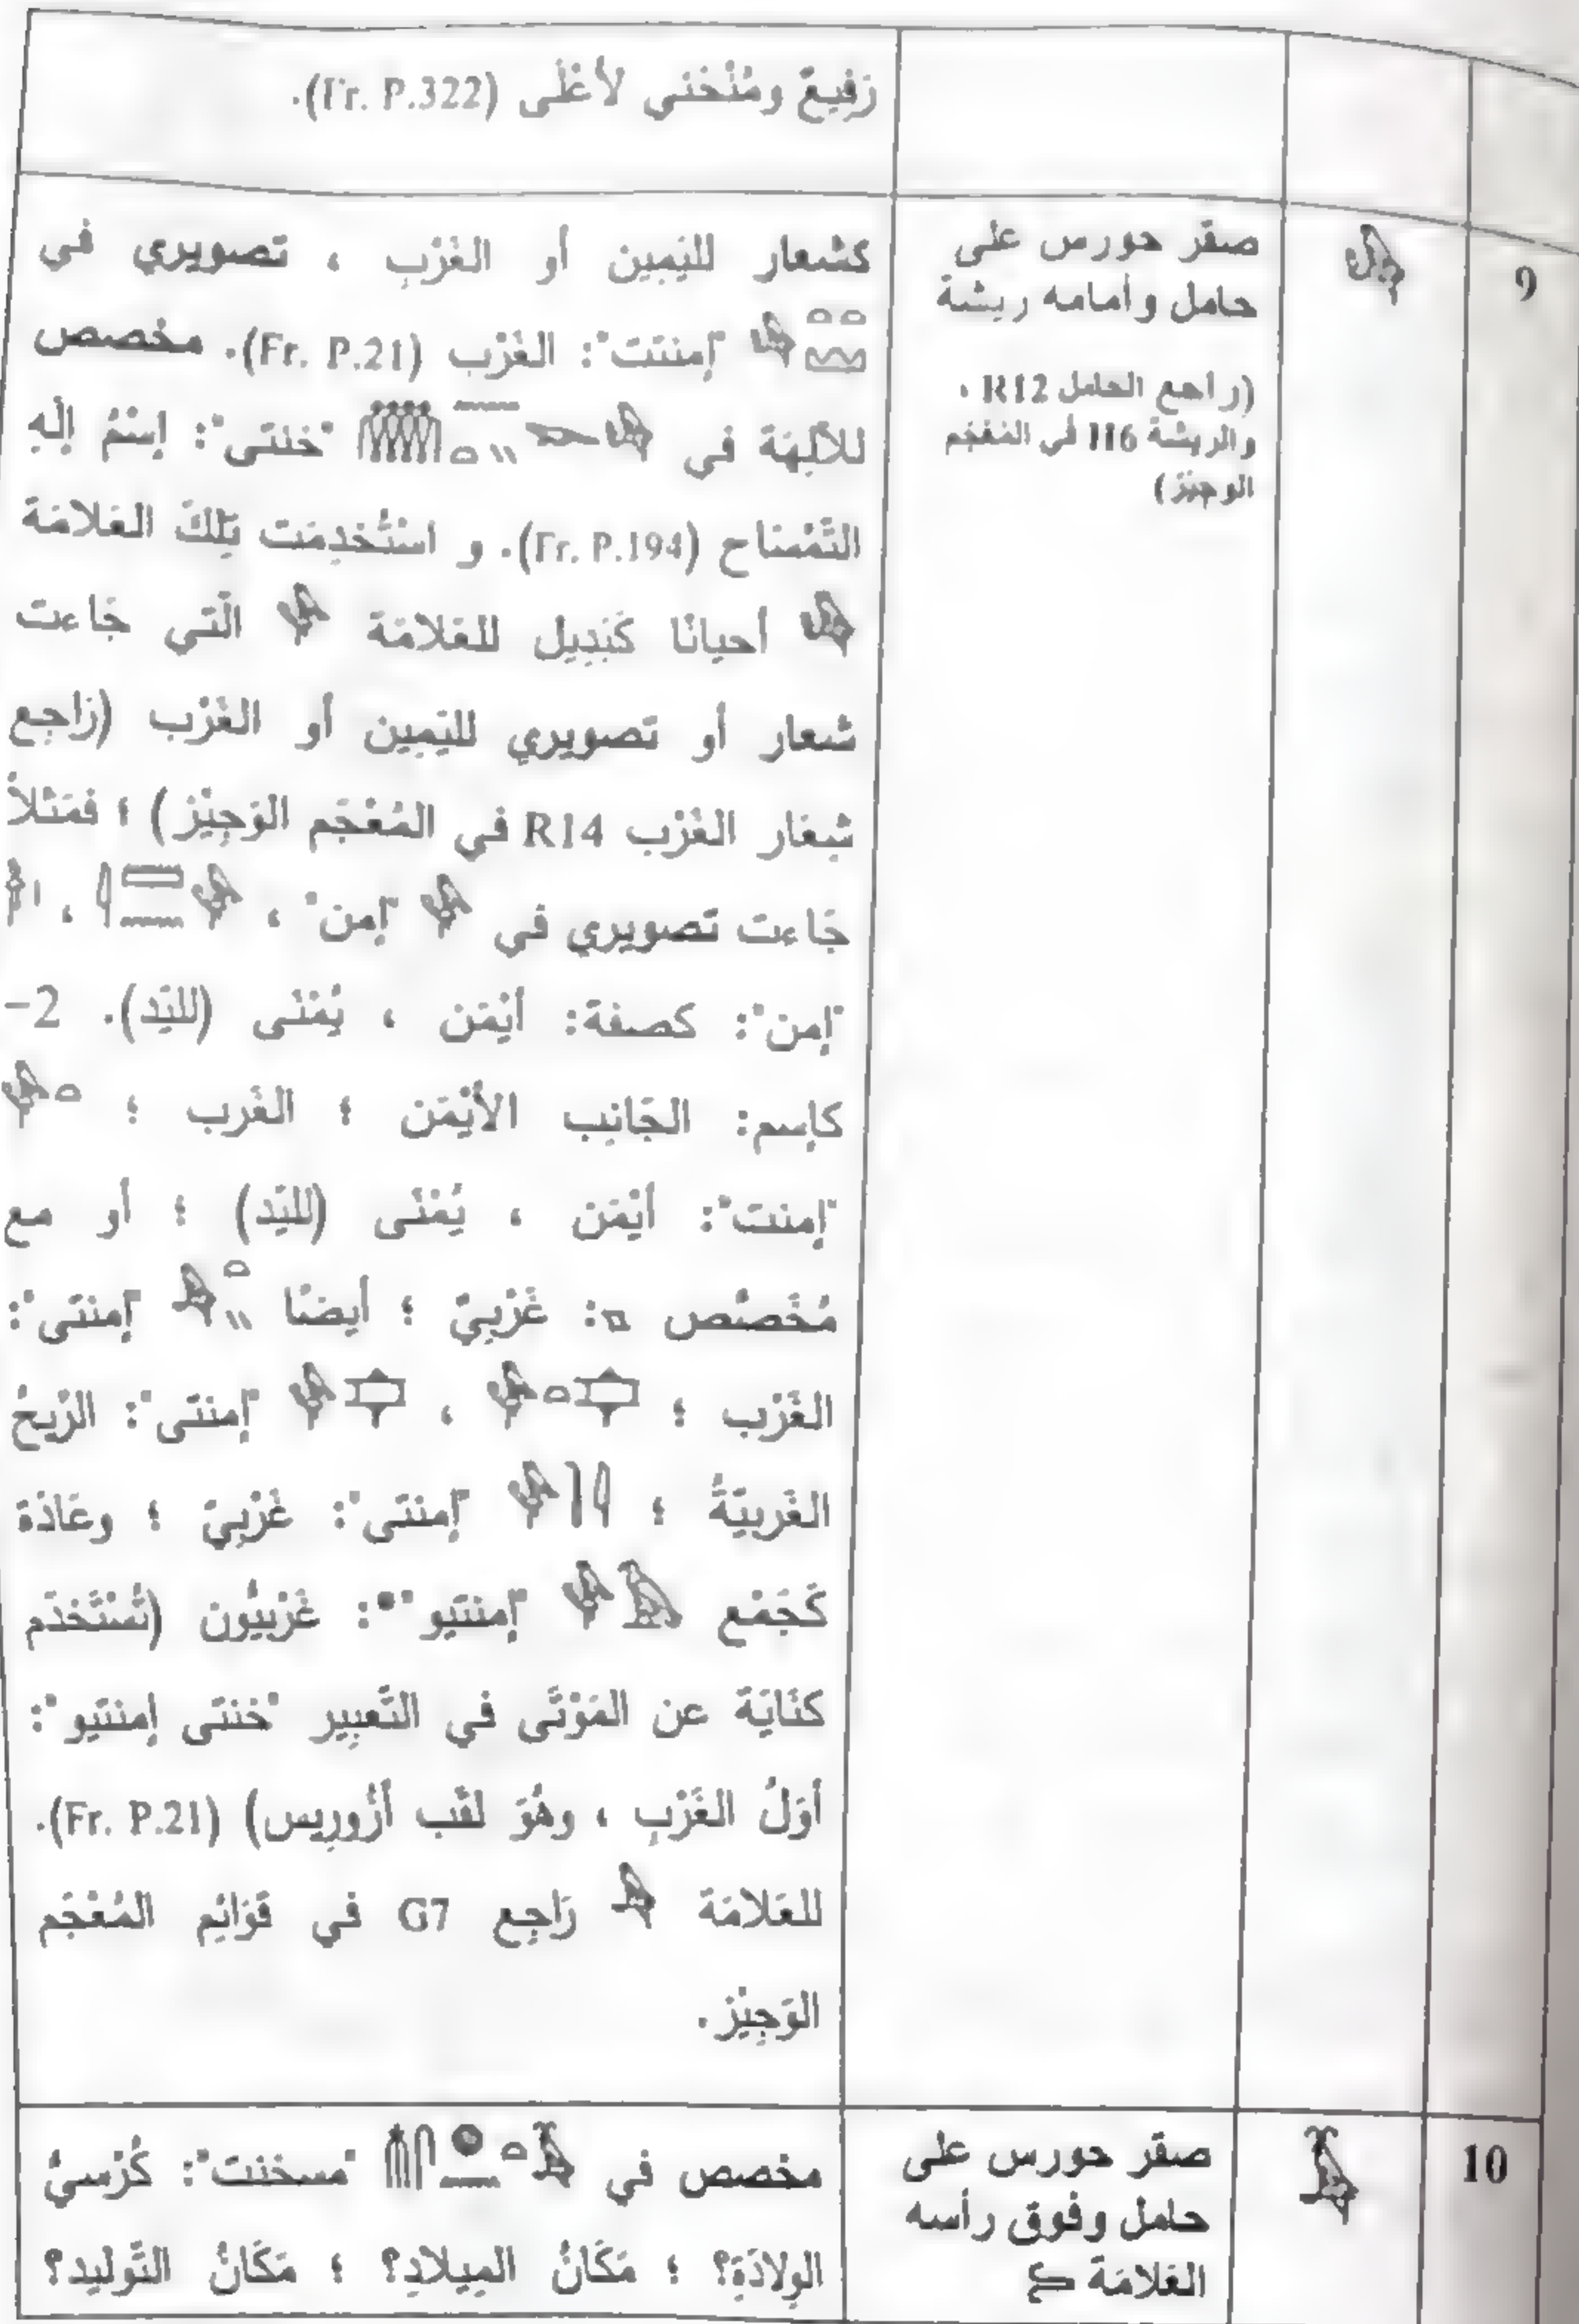 رَفِيعٌ ومُنْحَنى لأَعْلَى (Fr. P.322).
9
صقر حورس على
حامل وأمامه ريشة
(راجع الحامل R12 ،
والريشة H6 في المُعْجَم
الوجيز)
كشعار لليَمِين أو الغَرْبِ ، تصويري في
"إمنتت": الغَرْب (Fr. P.21). مخصص
للآلِهَة في "خنتى": اِسْمُ إلَهِ
التَّمْسَاح (Fr. P.194). و اسْتُخدِمَت تِلكَ العَلامَة
أحيانًا كَبَدِيل للعَلامَة الَّتي جَاءت
شعار أو تصويري لليَمِين أو الغَرْب (رَاجع
شِعَار الغَرْب R14 في المُعْجَم الوَجِيْز) ؛ فمَثلاً
جَاءت تصويري في "إمن" ، ،
"إمن": كصفة: أَيْمَن ، يُمْنَى (لليَد). 2-
كإسم: الجَانِب الأَيْمَن ؛ الغَرب ؛
"إمنت": أَيْمَن ، يُمْنَى (لليَد) ؛ أو مع
مُخَصَّص : غَرْبِيّ ؛ أيضًا "إمنتى":
الغَرْب ؛ ، "إمنتى": الرِّيحُ
الغَربيَّةُ ؛ "إمنتى": غَرْبِيّ ؛ وعَادَة
كَجَمْع "إمنتيو"*: غَرْبِيُّون (تُسْتَخدَم
كنَايَة عن المَوْتَى في التَّعبِير "خنتى إمنتيو":
أوَلُ الغَرْبِ ، وهُوَ لقَب أُزُورِيس) (Fr. P.21).
للعَلامَة رَاجِع G7 في قَوَائِم المُعْجَم
الوَجِيْز.
10
صقر حورس على
حامل وفوق رأسه
العَلامَة
مخصص في "مسخنت": كُرْسيُّ
الوِلادَةِ؟ ؛ مَكَانُ المِيلادِ؟ ؛ مَكَانُ التَّوليد؟